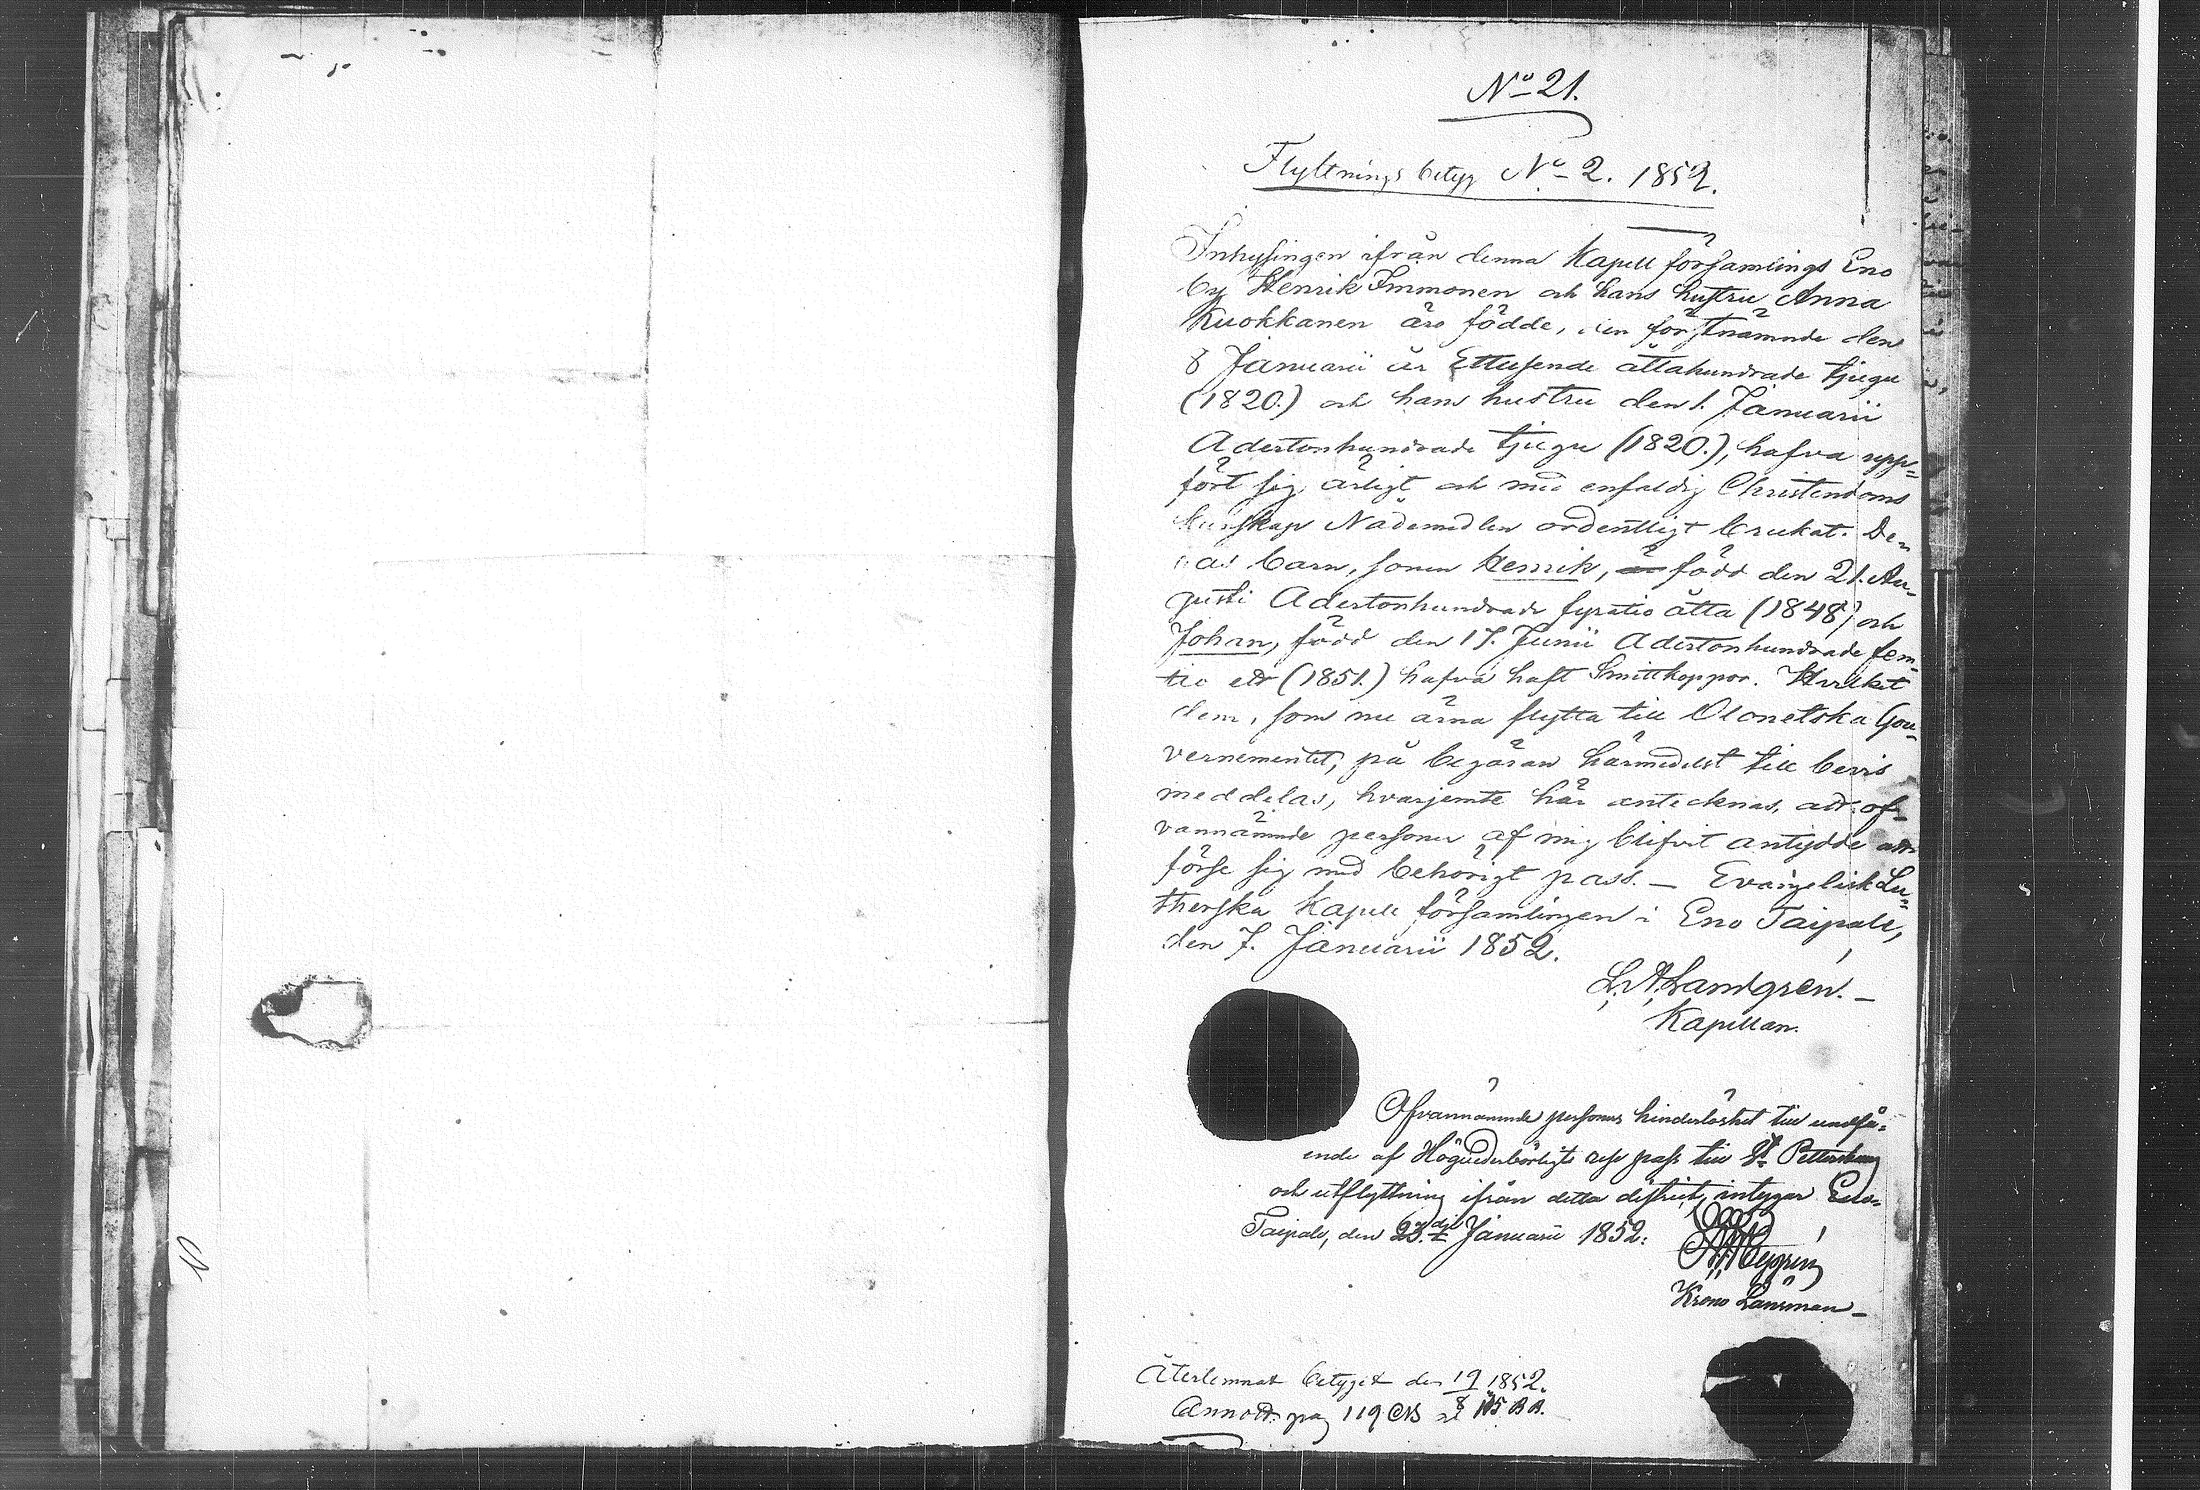 No 21.
Flyttnings betyg No 2. 1852.
Inhysingen ifrån denna Kapell församlings Eno
by Henrik Immonen och hans hustru Anna
Kuokkanen äro födde, den förstnämnde den
8 Januarii år Ettusende åttahundrade tjugu
(1820.) och hans hustru den 1. Januarii
Adertonhundrade tjugu (1820.), hafva upp-
fört sig ärligt och med enfaldig Christendoms
kunskap Nådemedlen ordentligt brukat. De-
ras barn, sonen Henrik, är född den 21. Au-
gusti Adertonhundrade fyratio åtta (1848) och
Johan, född den 17. Junii Adertonhundrade fem-
tio ett (1851.) hafva haft Smittkoppor. Hvilket
dem, som nu ärna flytta till Olonetska Gou-
vernementet, på begäran härmedelst till bevis
meddelas, hvarjemte här antecknas, att of-
vannämnde personer af mig blifvit antydde att
förse sig med behörigt pass. — Evangelisk Lu-
therska Kapell församlingen i Eno Taipale,
den 7. Januarii 1852.
L. A. Landgren. —
Kapellan.
Ofvannämnde personers hinderlöshet till undfå-
ende af Högvederbörligt rese pass till St Pettersburg
och utflyttning ifrån detta district, intygar Eno-
Taipale, den 23. Januarii 1852.
Krono Länsman —
Återlemnat betyget den 19/8 1852.
Annott. pag 119
10